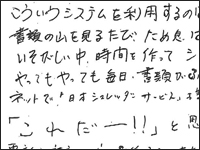 こういうシステムを利用するの
書類の山を見るたび ため息
いそがしい中、時間を作って シ
やってもやっても 毎日 書類が
ネットで「日本シュレッダーサービス」
「これだー!!」と思